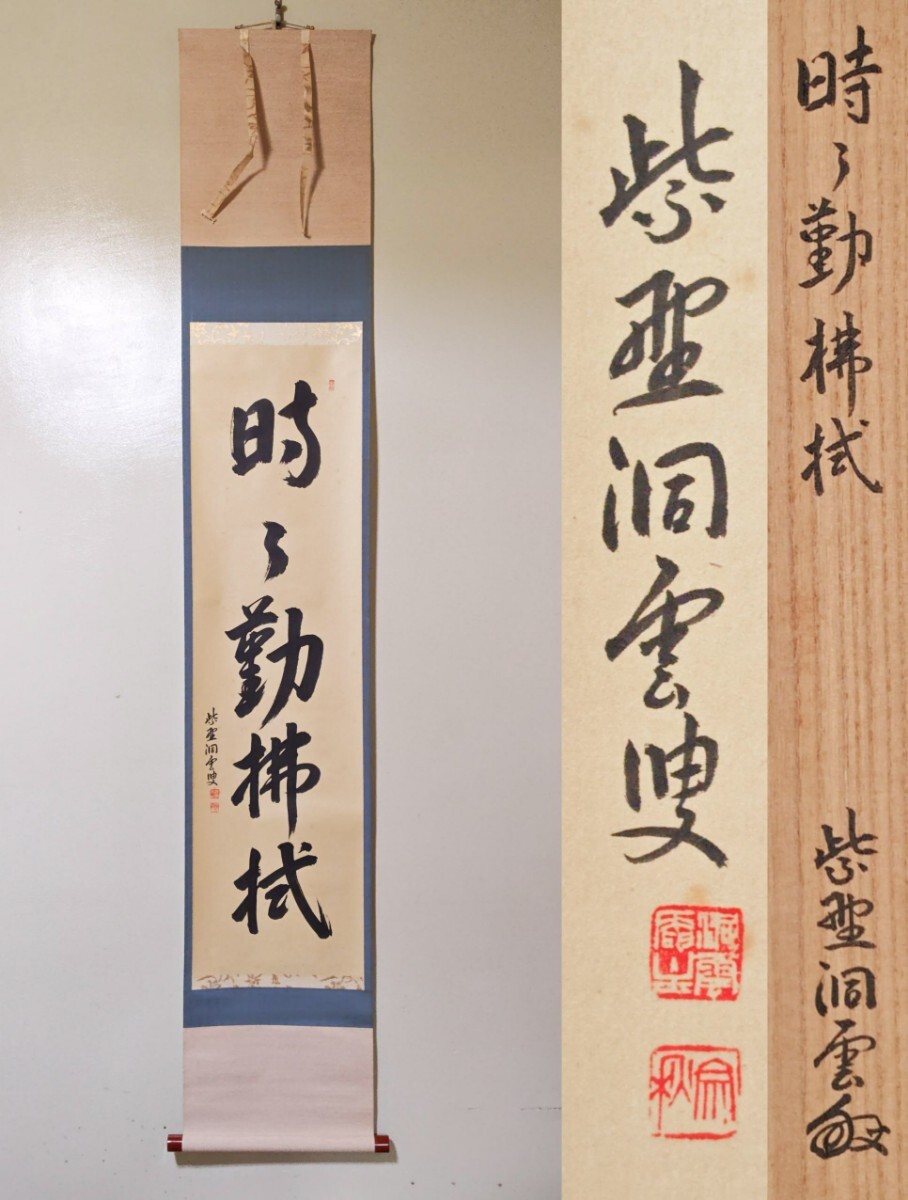 時々勤拂拭
紫野洞雲叟
紫野洞雲叟
時々勤拂拭
紫野洞雲